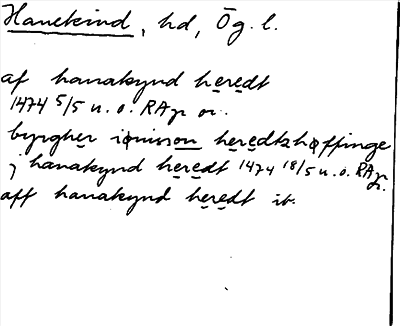 Hanekind, hd, Ög. l.
af hanakynd heredt
1474 5/5 u. o. RAp or.
byrgher iønisson heredtzhøffinge
j hanakynd heredt 1474 18/5 u. o. RAp.
aff hanakynd heredt ib.